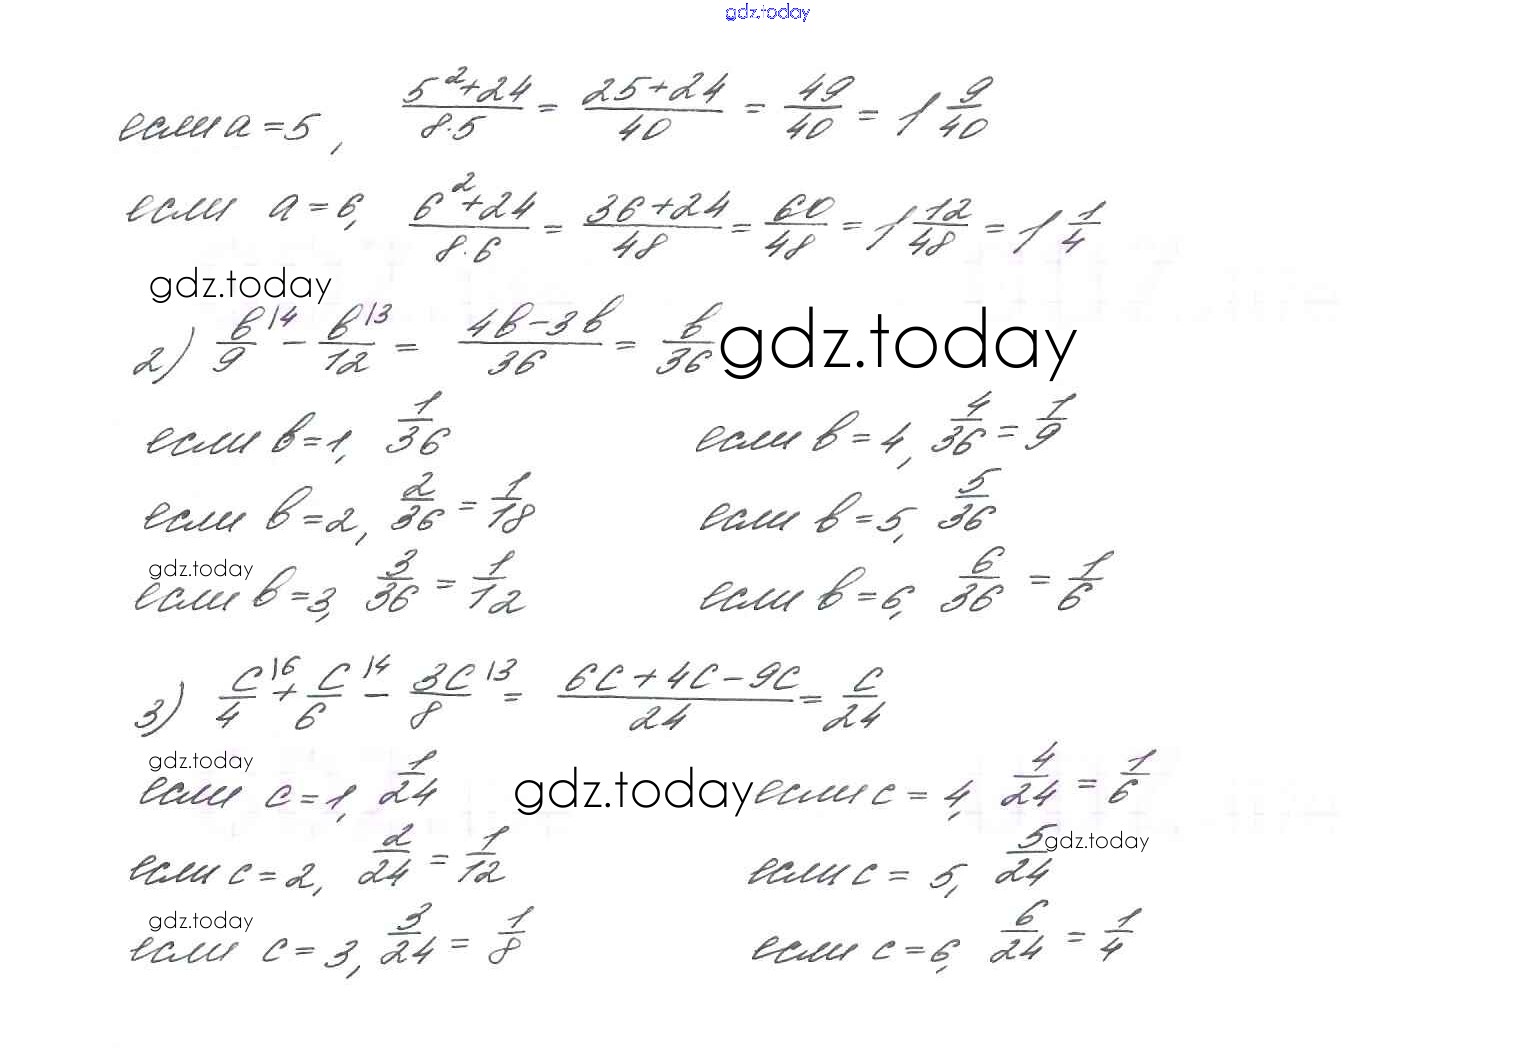 gdz.today
если a = 5, (5² + 24)/(8·5) = (25 + 24)/40 = 49/40 = 1 9/40
если a = 6, (6² + 24)/(8·6) = (36 + 24)/48 = 60/48 = 1 12/48 = 1 1/4
gdz.today
2) в/9 |4 − в/12 |3 = (4в − 3в)/36 = в/36 gdz.today
если в = 1, 1/36 если в = 4, 4/36 = 1/9
если в = 2, 2/36 = 1/18 если в = 5, 5/36
gdz.today
если в = 3, 3/36 = 1/12 если в = 6, 6/36 = 1/6
3) c/4 |6 + c/6 |4 − 3c/8 |3 = (6c + 4c − 9c)/24 = c/24
gdz.today
если c = 1, 1/24 gdz.today если c = 4, 4/24 = 1/6
если c = 2, 2/24 = 1/12 если c = 5, 5/24 gdz.today
gdz.today
если c = 3, 3/24 = 1/8 если c = 6, 6/24 = 1/4